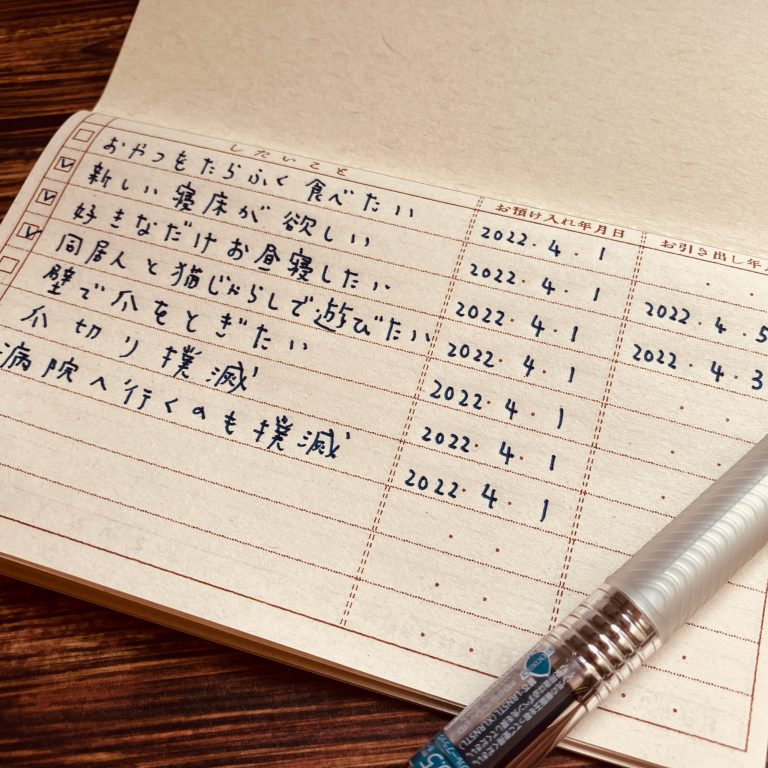 したいこと お預け入れ年月日 お引き出し年月
おやつをたらふく食べたい 2022.4.1
新しい寝床が欲しい 2022.4.1 2022.4.5
好きなだけお昼寝したい 2022.4.1 2022.4.3
同居人と猫じゃらしで遊びたい 2022.4.1
壁で爪をとぎたい 2022.4.1
爪切り撲滅 2022.4.1
病院へ行くのも撲滅 2022.4.1